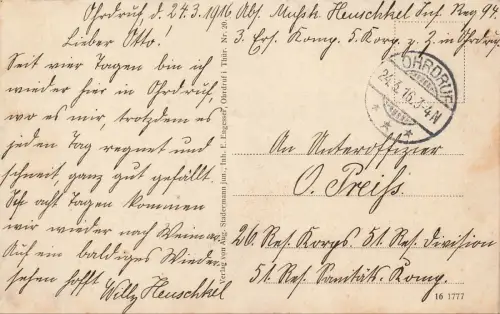 Ohrdruf d. 24.3.1916
Lieber Otto.
Seit vier Tagen bin ich
wieder hier in Ohrdruf,
wo es mir, trotzdem es
jeden Tag regnet und
schneit, ganz gut gefällt.
In acht Tagen kommen
wir wieder nach Weimar.
Auf ein baldiges Wieder-
sehen hofft Willy Heuschkel
Verlag von Aug. Studermann jun., Inh. E. Dagesser, Ohrdruf i. Thür. Nr. 20.
Abs. Musk. Heuschkel Inf. Reg 94
3. Ers. Komp. 5. Korp. z. Z. in Ohrdruf
OHRDRUF
24.3.16.3-4N
An Unteroffizier
O. Preiß
26 Res. Korps. 51. Res. Division
51. Res. Sanitäts. Komp.
16 1777